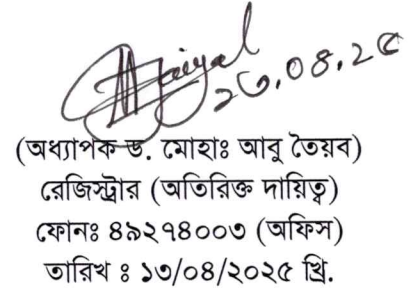 ১৩.০৪.২৫
(অধ্যাপক ড. মোহাঃ আবু তৈয়ব)
রেজিস্ট্রার (অতিরিক্ত দায়িত্ব)
ফোনঃ ৪৯২৭৪০০৩ (অফিস)
তারিখ ঃ ১৩/০৪/২০২৫ খ্রি.